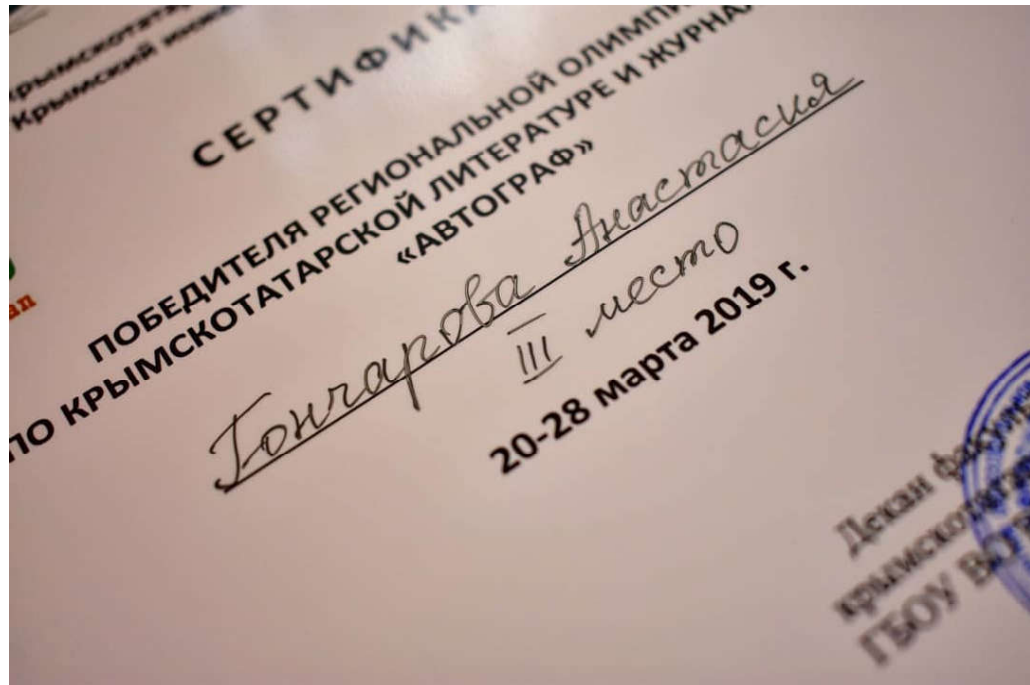 Крымский инже
СЕРТИФИКА
ПОБЕДИТЕЛЯ РЕГИОНАЛЬНОЙ ОЛИМПИ
ПО КРЫМСКОТАТАРСКОЙ ЛИТЕРАТУРЕ И ЖУРНА
«АВТОГРАФ»
Гончарова Анастасия
III место
20-28 марта 2019 г.
Декан
крымскотатар
ГБОУ ВО